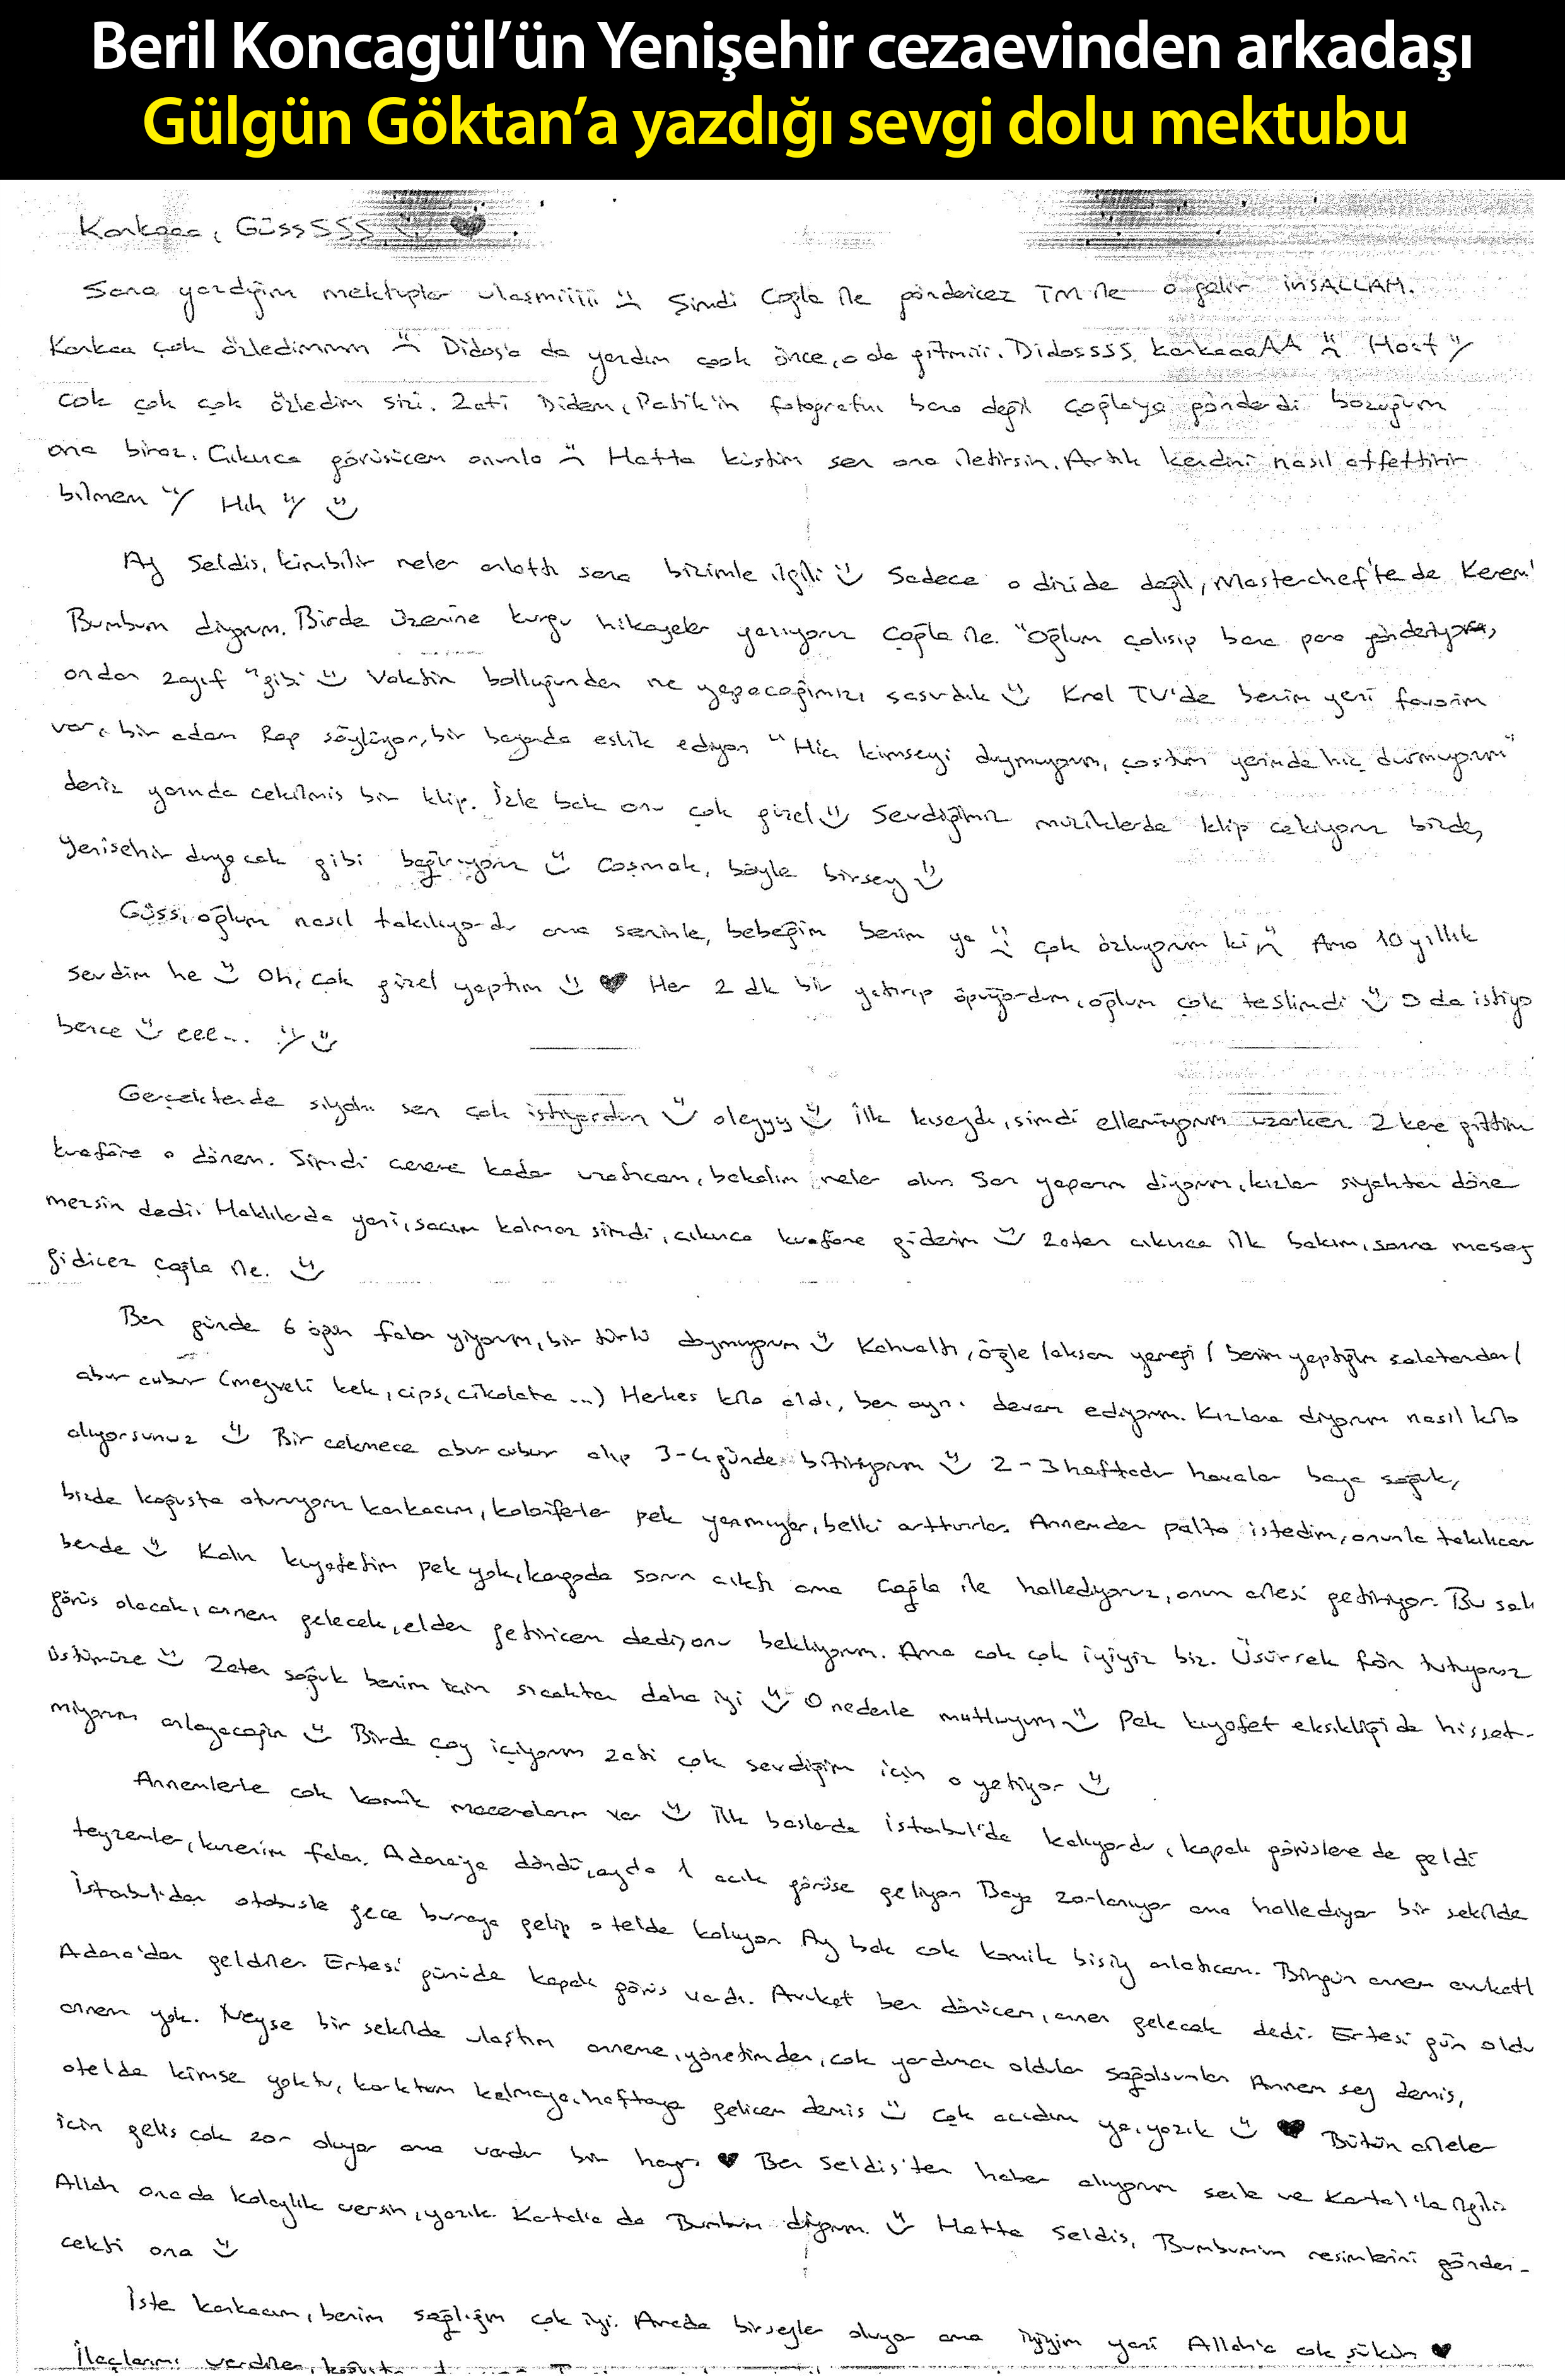 Beril Koncagül’ün Yenişehir cezaevinden arkadaşı
Gülgün Göktan’a yazdığı sevgi dolu mektubu
Kankaaa, GüssSSS
Sana yazdığım mektuplar ulaşmıııı Şimdi Çağla ile göndericez TM ile o gelir inŞALLAH.
Kankaa çok özledimmm Didoş'a da yazdım çook önce, o da gitmiii. Didossss kankaaaAA Hoşt
Çok çok çok özledim sizi. Zati Didem, Patik'in fotoğrafını bana değil Çağlaya gönderdi bozuğum
ona biraz. Çıkınca görüşücem onunla Hatta küstüm sen ona iletirsin. Artık kendini nasıl affettirir
bilmem Hıh
Ay Seldis, kimbilir neler anlattı sana bizimle ilgili Sadece o dizide değil, Masterchef'te de Kerem'
Bumbum diyorum. Birde üzerine kurgu hikayeler yazıyoruz Çağla ile. "Oğlum çalışıp bana para gönderiyor,
ondan zayıf" gibi Vaktin bolluğundan ne yapacağımızı şaşırdık Kral TV'de benim yeni favorim
var, bir adam Rap söylüyor, bir bayanda eşlik ediyor "Hiç kimseyi duymuyorum, coştum yerimde hiç durmuyorum"
deniz yanında çekilmiş bir klip. İzle bak onu çok güzel Sevdiğimiz müziklerde klip çekiyoruz bizde,
Yenişehir duyacak gibi bağırıyoruz Coşmak, böyle birşey
Güss, oğlum nasıl takılıyordu ama seninle, bebeğim benim ya çok özlüyorum ki Ama 10 yıllık
sevdim he Oh, çok güzel yaptım Her 2 dk bir yatırıp öpüyordum, oğlum çok teslimdi O da istiyo
bence eee...
Gerçektende siyahı sen çok istiyordun oleyyy İlk kısaydı, şimdi elleniyorum uzarken 2 kere gittim
kuaföre o dönem. Şimdi çeneme kadar uzatıcam, bakalım neler olur Sarı yaparım diyorum, kızlar siyahtan döne
mezsin dedi. Haklılarda yani, saçım kalmaz şimdi, çıkınca kuaföre giderim Zaten çıkınca ilk bakım, sonra masaj
gidicez Çağla ile.
Ben günde 6 öğün falan yiyorum, bir türlü doymuyorum Kahvaltı, öğle/akşam yemeği/benim yaptığım salatadan/
abur cubur (meyveli kek, cips, çikolata ...) Herkes kilo aldı, ben aynı devam ediyorum. Kızlara diyorum nasıl kilo
alıyorsunuz Bir çekmece abur cubur alıp 3-4 günde bitiriyorum 2-3 haftadır havalar baya soğuk,
bizde koğuşta oturuyoruz kankacım, kaloriferler pek yanmıyor, belki arttırırlar. Annemden palto istedim, onunla takılıcam
bende Kalın kıyafetim pek yok, kargoda sorun çıktı ama Çağla ile hallediyoruz, onun ailesi getiriyor. Bu salı
görüş olacak, annem gelecek, elden getiricem dedi, onu bekliyorum. Ama çok çok iyiyiz biz. Üşürsek fön tutuyoruz
üstümüze Zaten soğuk benim için sıcaktan daha iyi O nedenle mutluyum Pek kıyafet eksikliği de hisset-
miyorum anlayacağın Birde çay içiyorum zati çok sevdiğim için o yetiyor
Annemlerle çok komik maceralarım var İlk başlarda İstanbul'da kalıyordu, kapalı görüşlere de geldi
teyzemler, kuzenim falan. Adana'ya döndü, ayda 1 açık görüşe geliyor. Baya zorlanıyor ama hallediyor bir şekilde
İstanbul'dan otobüsle gece buraya gelip otelde kalıyor. Ay bak çok komik bişiy anlatıcam. Birgün annem avukatla
Adana'dan geldiler. Ertesi günüde kapalı görüş vardı. Avukat ben dönücem, annen gelecek dedi. Ertesi gün oldu
annem yok. Neyse bir şekilde ulaştım anneme, yönetimden, çok yardımcı oldular sağolsunlar Annem şey demiş,
otelde kimse yoktu, korktum kalmaya, haftaya gelicem demiş Çok acıdım ya, yazık Bütün aileler
için geliş çok zor oluyor ama vardır bir hayrı Ben Seldis'ten haber alıyorum senle ve Kartal'la ilgili
Allah ona da kolaylık versin, yazık. Kartal'a da Bumbum diyorum. Hatta Seldis, Bumbumun resimlerini gönder-
cekti ona
İşte kankacım, benim sağlığım çok iyi. Arada birşeyler oluyor ama iyiyim yani Allah'a çok şükür
İlaçlarımı verdiler,